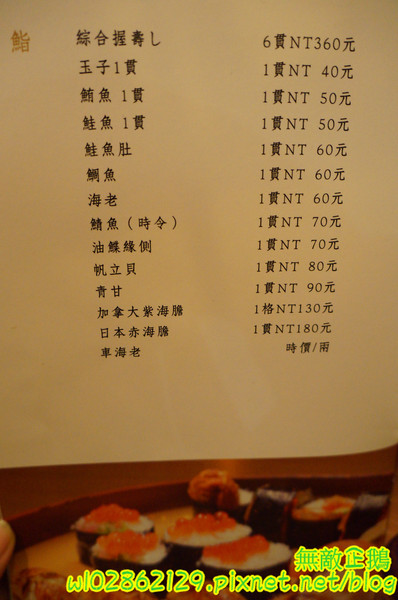 鮨
綜合握壽し 6貫NT360元
玉子1貫 1貫NT 40元
鮪魚 1貫 1貫NT 50元
鮭魚 1貫 1貫NT 50元
鮭魚肚 1貫NT 60元
鯛魚 1貫NT 60元
海老 1貫NT 60元
鯖魚（時令） 1貫NT 70元
油鰈緣側 1貫NT 70元
帆立貝 1貫NT 80元
青甘 1貫NT 90元
加拿大紫海膽 1格NT130元
日本赤海膽 1貫NT180元
車海老 時價/兩
無敵企鵝
wl02862129.pixnet.net/blog